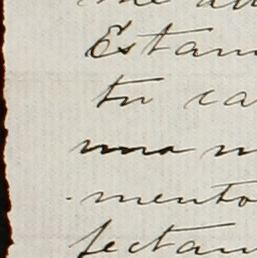 Estam
tu ca
una m
mento
fectam